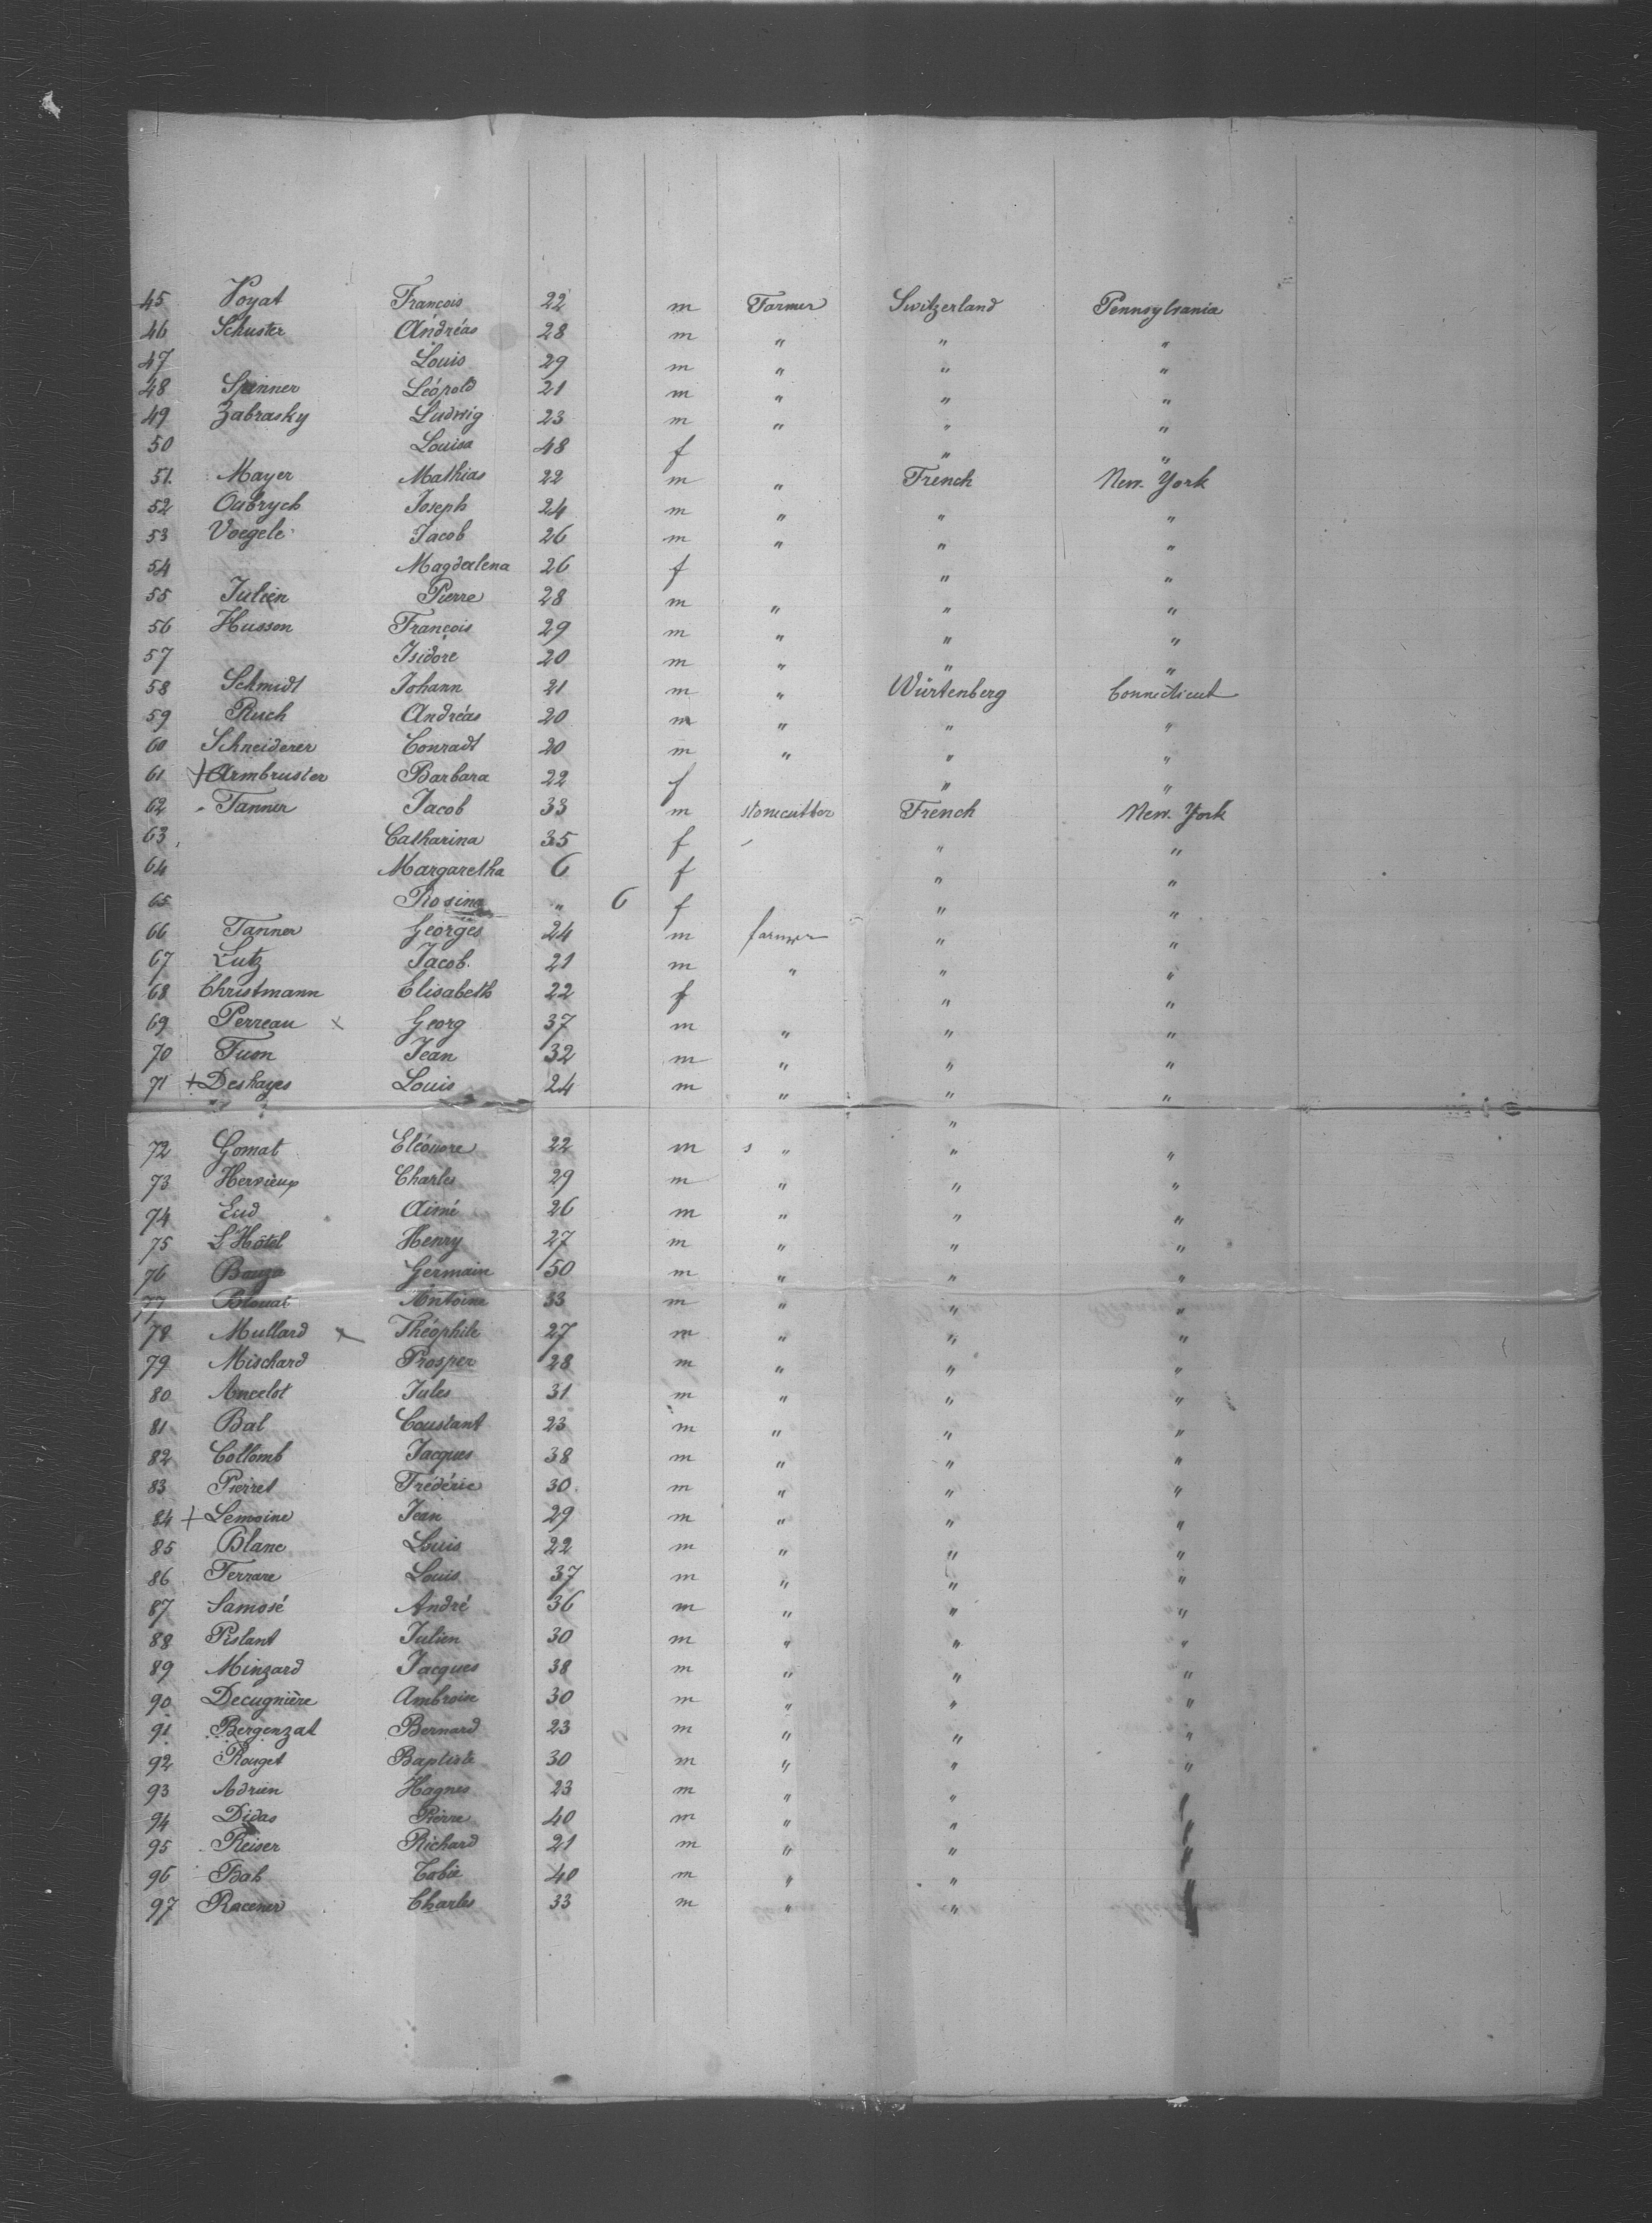 45 Voyat François 22 m Farmer Switzerland Pennsylvania
46 Schuster Andréas 28 m " " "
47 Louis 29 m " " "
48 Spinner Léópold 21 m " " "
49 Zabrasky Ludwig 23 m " " "
50 Louisa 48 f " "
51. Mayer Mathias 22 m " French New. York
52 Oubrych Joseph 24 m " " "
53 Voegele Jacob 26 m " " "
54 Magdalena 26 f " "
55 Julien Pierre 28 m " " "
56 Husson François 29 m " " "
57 Isidore 20 m " " "
58 Schmidt Johann 21 m " Würtenberg Connecticut
59 Ruch Andréas 20 m " " "
60 Schneiderer Conradt 20 m " " "
61 + Armbruster Barbara 22 f " "
62 Tanner Jacob 33 m stonecutter French New. York
63 Catharina 35 f " "
64 Margaretha 6 f " "
65 Rosina " 6 f " "
66 Tanner Georges 24 m farmer " "
67 Lutz Jacob. 21 m " " "
68 Christmann Elisabeth 22 f " "
69 Perreau x Georg 37 m " " "
70 Fum Jean 32 m " " "
71 + Deshayes Louis 24 m " " "
"
72 Gomat Eléonore 22 m s " " "
73 Hervieux Charles 29 m " " "
74 Eud Aimé 26 m " " "
75 L'Hôtel Henry 27 m " " "
76 Bouza Germain 50 m " " "
77 Blouat Antoine 33 m " " "
78 Mullard x Théophile 27 m " " "
79 Mischard Prosper 28 m " " "
80 Ancelot Jules 31 m " " "
81 Bal Constant 23 m " " "
82 Collomb Jacques 38 m " " "
83 Pierret Frédéric 30. m " " "
84 + Lemoine Jean 29 m " " "
85 Blanc Louis 22 m " " "
86 Ferrare Louis 37 m " " "
87 Samosé André 36 m " " "
88 Pislant Julien 30 m " " "
89 Minzard Jacques 38 m " " "
90 Decugnière Ambroise 30 m " " "
91 Bergenzat Bernard 23 m " " "
92 Rouget Baptiste 30 m " " "
93 Adrien Hagnes 23 m " " "
94 Didas Pierre 40 m " " "
95 Reiser Richard 21 m " " "
96 Bah Tobie 40 m " " "
97 Racener Charles 33 m " " "